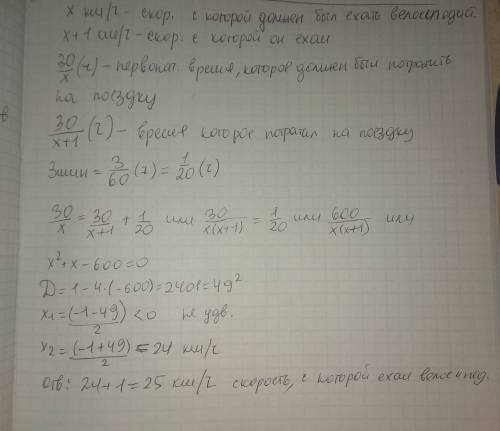 x км/ч - скор. с которой должен был ехать велосипедист.
x+1 км/ч - скор. с которой он ехал
30/x (ч) - первонач. время, которое должен был потратить
на поездку
30/x+1 (ч) - время которое потратил на поездку
3мин = 3/60 (ч) = 1/20 (ч)
30/x = 30/x+1 + 1/20 или 30/x(x+1) = 1/20 или 600/x(x+1) или
x²+x-600=0
D=1-4·(-600)=2401=49²
x1=(-1-49)/2 <0 не удв.
x2=(-1+49)/2 = 24 км/ч
Отв: 24+1=25 км/ч скорость, с которой ехал велосипед.